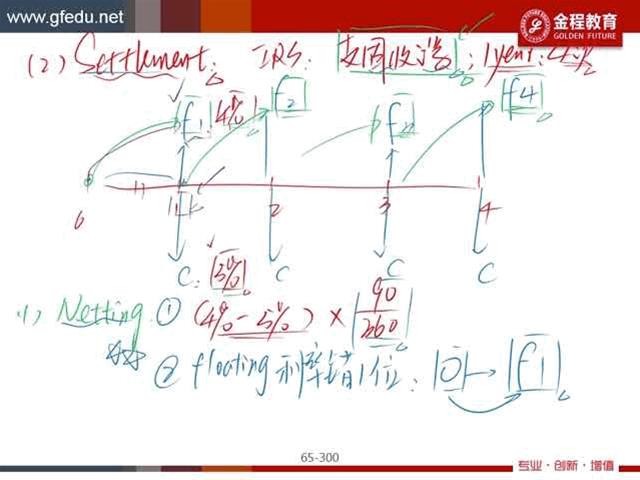 www.gfedu.net
金程教育
GOLDEN FUTURE
(2) Settlement: IRS: 支固收浮: 1year: 4次
f1 4% f2 f3 f4
0 1 2 3 4
C: 3% C C C
(1) Netting ① (4%-3%) × 90/360
② floating 利率错1位: 0 → f1
65-300
专业·创新·增值